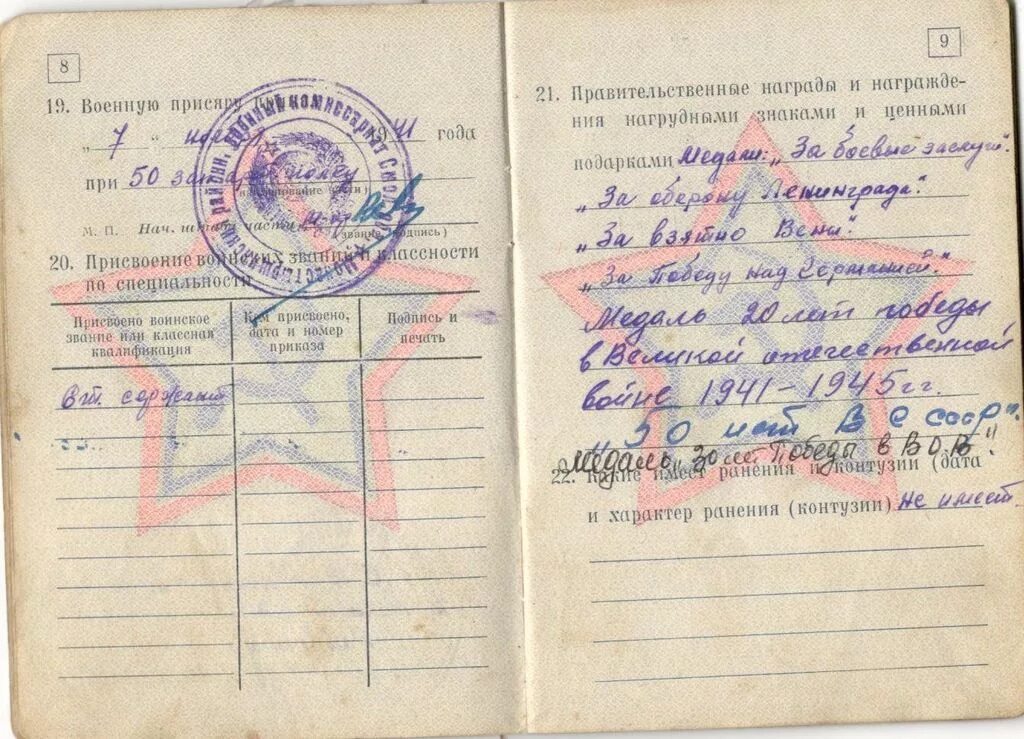 8
19. Военную присягу
„ 7 „ 1941 года
при 50
(наименование части)
М. П. Нач. штаба части
(звание, подпись)
20. Присвоение воинских званий и классности
по специальности
Присвоено воинское
звание или классная
квалификация
Кем присвоено,
дата и номер
приказа
Подпись и
печать
Ст. сержант
9
21. Правительственные награды и награжде-
ния нагрудными знаками и ценными
подарками Медали: „За боевые заслуги".
„За оборону Ленинграда".
„За взятие Вены".
„За Победу над Германией."
Медаль 20 лет победы
в Великой отечественной
войне 1941-1945 гг.
„50 лет В С СССР".
Медаль „30 лет Победы в ВОВ"
22. Какие имеет ранения и контузии (дата
и характер ранения (контузии) Не имеет